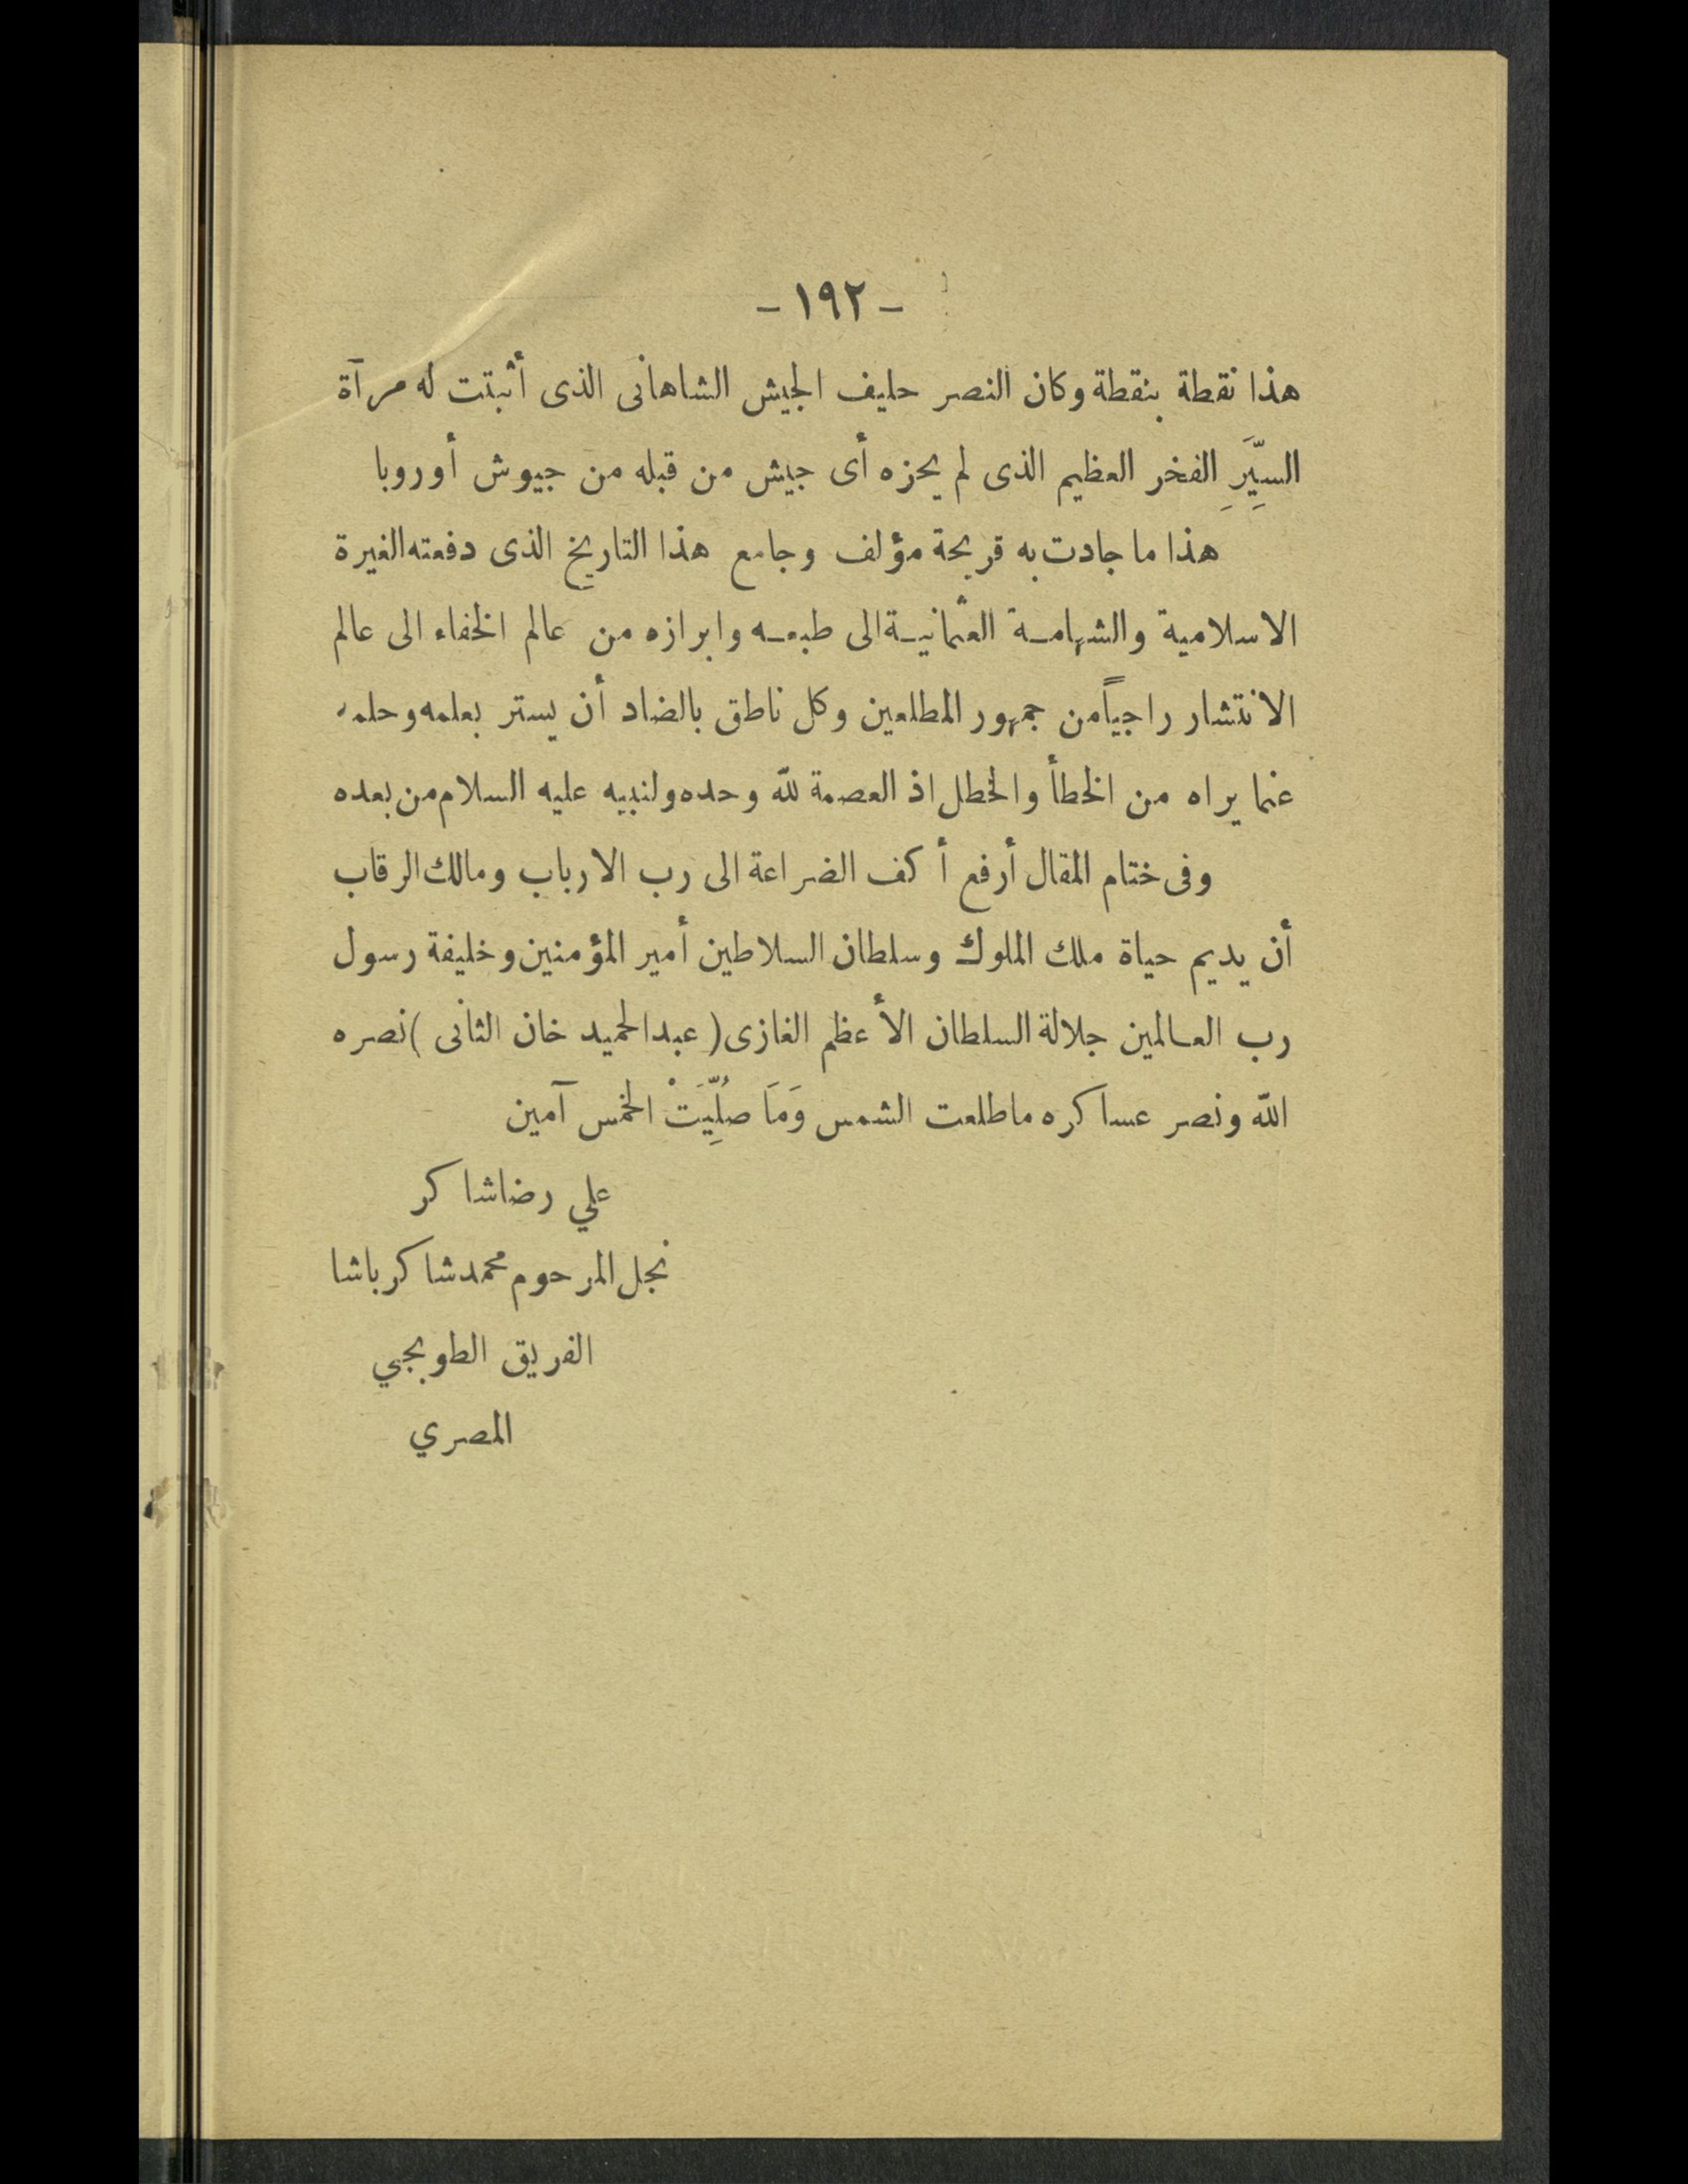 - ١٩٢ -
هذا نقطة بنقطة وكان النصر حليف الجيش الشاهانى الذى أثبتت له مرآة
السِّيَرِ الفخر العظيم الذى لم يحزه أى جيش من قبله من جيوش أوروبا
هذا ما جادت به قريحة مؤلف وجامع هذا التاريخ الذى دفعته الغيرة
الاسلامية والشهامـة العثمانيـة الى طبعـه وابرازه من عالم الخفاء الى عالم
الانتشار راجياً من جمهور المطلعين وكل ناطق بالضاد أن يستر بعلمه وحلمه
عما يراه من الخطأ والخطل اذ العصمة لله وحده ولنبيه عليه السلام من بعده
وفى ختام المقال أرفع أكف الضراعة الى رب الارباب ومالك الرقاب
أن يديم حياة ملك الملوك وسلطان السلاطين أمير المؤمنين وخليفة رسول
رب العـالمين جلالة السلطان الأعظم الغازى (عبد الحميد خان الثانى) نصره
الله ونصر عساكره ما طلعت الشمس وَمَا صُلِّيَتْ الخمس آمين
علي رضا شاكر
نجل المرحوم محمد شاكر باشا
الفريق الطوبجي
المصري